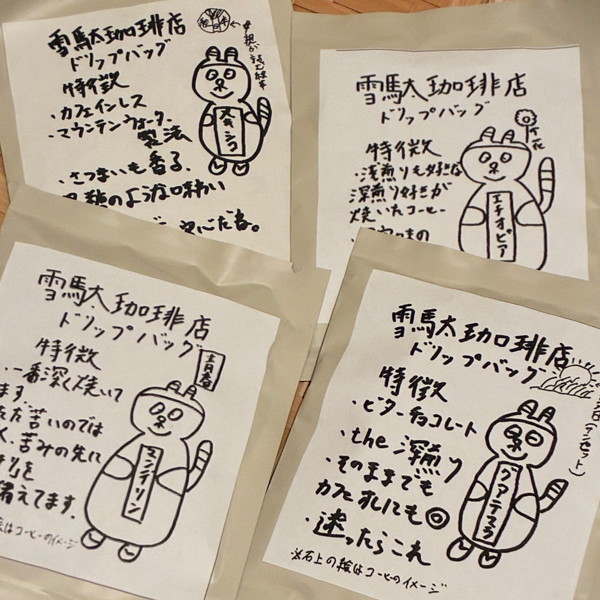 雪駄珈琲店
ドリップバッグ
特徴
・カフェインレス
・マウンテンウォーター
製法
・さつまいも香る
のような味わい
メキシコ
雪駄珈琲店
ドリップバッグ
特徴
・浅煎りも好きな
深煎り好きが
焼いたコーヒー
エチオピア
雪駄珈琲店
ドリップバッグ
特徴
・一番深く焼いて
ます
ただ苦いのでは
く、苦みの先に
りを
備えてます。
絵はコーヒーのイメージ
青春
マンデリン
雪駄珈琲店
ドリップバッグ
特徴
・ビターチョコレート
・the 深煎り
・そのままでも
カフェオレにも◎
・迷ったらこれ
※右上の絵はコーヒーのイメージ
グアテマラ
(サンセット)